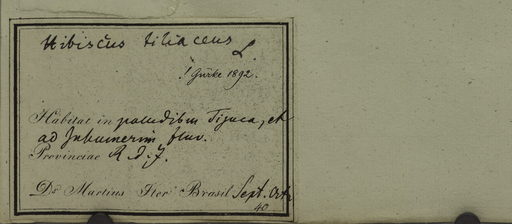 Hibiscus tiliaceus L.
! Gürke 1892.
Habitat in paludibus Tijuca, et
ad fluv.
Provinciae R. d. J.
Dr Martius Iter Brasil Sept. Octr
40